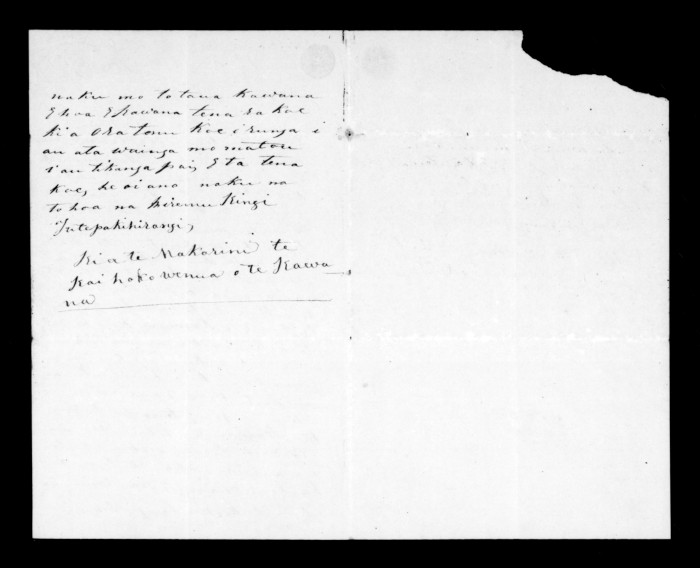 naku mo to taua Kawana
E hoa E Kawana tena ra koe
kia ora tonu koe i runga i
au ata wainga mo matou
i au tikanga pai, E ta tena
koe, he oi ano naku na
to hoa na Wiremu Kingi
Tutepakihirangi,
Ki a te Makarini te
Kai hoko wenua o te Kawa
na